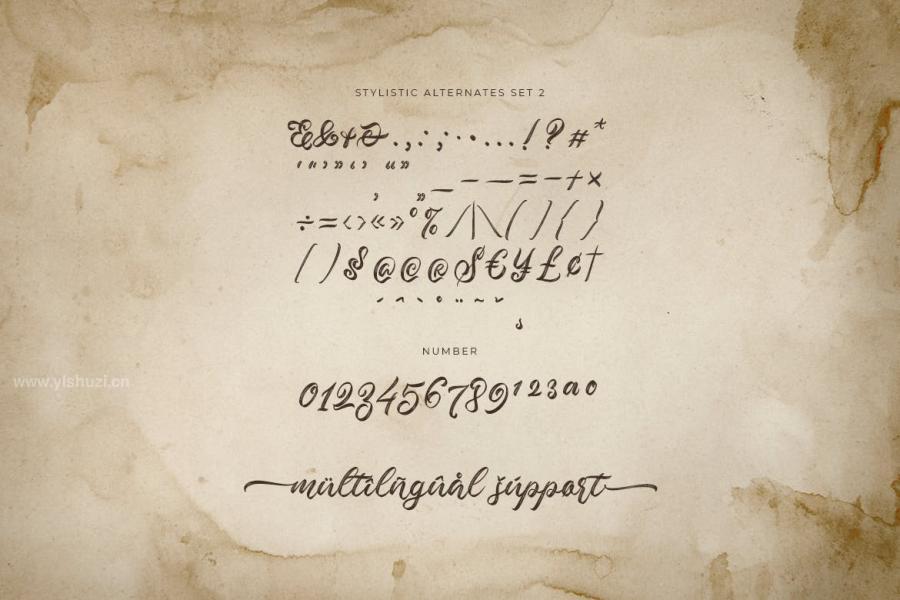 STYLISTIC ALTERNATES SET 2
& . , : ; · • ... ! ? # *
‘ “ ’ ” ‹ › “ ”
, „ _ – — = − + ×
÷ = ‹ › « » ° % / | \ ( ) { }
( ) § @ © ® $ € ¥ £ ¢ †
´ ˆ ` ˚ ¨ ˜ ˇ
¸
NUMBER
0123456789¹²³ªº
www.yishuzi.cn
mültîlñgûål šúppørt